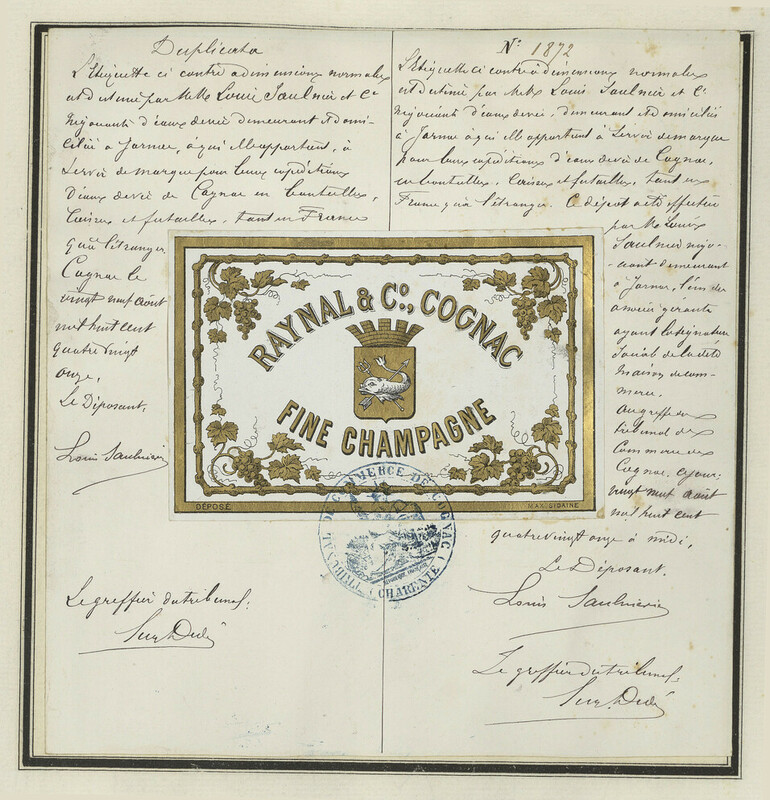 Duplicata
L'étiquette ci contre a dimensions normales
est destinée par MMrs Louis Saulnier et Cie
négociants d'eaux de vie demeurant et domi-
ciliés à Jarnac, à qui elle appartient, à
servir de marque pour leurs expéditions
d'eaux de vie de Cognac en bouteilles,
caisses et futailles, tant en France
qu'à l'étranger.
Cognac le
vingt neuf août
mil huit cent
quatre vingt
onze,
Le Déposant,
Louis Saulnier
Le greffier du tribunal,
No 1872
L'étiquette ci contre à dimensions normales
est destinée par MMrs Louis Saulnier et Cie
négociants d'eaux de vie, demeurant et domiciliés
à Jarnac à qui elle appartient à servir de marque
pour leurs expéditions d'eaux de vie de Cognac,
en bouteilles, caisses et futailles, tant en
France qu'à l'étranger. Ce dépôt a été effectué
par Mr Louis
Saulnier négo-
ciant demeurant
à Jarnac, l'un des
associés gérants
ayant la signature
sociale de la dite
maison de com-
merce.
Au greffe du
tribunal de
Commerce de
Cognac, ce jour
vingt neuf août
mil huit cent
quatre vingt onze à midi,
Le Déposant.
Louis Saulnier
Le greffier du tribunal,
RAYNAL & Co., COGNAC
FINE CHAMPAGNE
DÉPOSÉ
MAX SIDAINE
TRIBUNAL DE COMMERCE DE COGNAC
(CHARENTE)